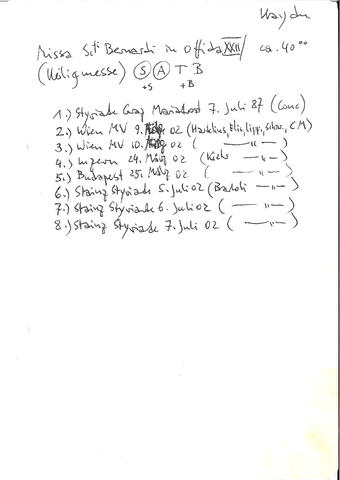 Haydn
Missa Sti Bernardi in Offida XXII/ ca. 40°°
(Heiligmesse) S A T B
+S +B
1.) Styriarte Graz Mariatrost 7. Juli 87 (Conc)
2.) Wien MV 9. März 02 (Hartelius, Elsn, Lippi, Schar, CM)
3.) Wien MV 10. März 02 ( —"— )
4.) Luzern 24. März 02 ( —"— )
5.) Budapest 25. März 02 ( —"— )
6.) Stainz Styriarte 5. Juli 02 (Bartoli —"— )
7.) Stainz Styriarte 6. Juli 02 ( —"— )
8.) Stainz Styriarte 7. Juli 02 ( —"— )